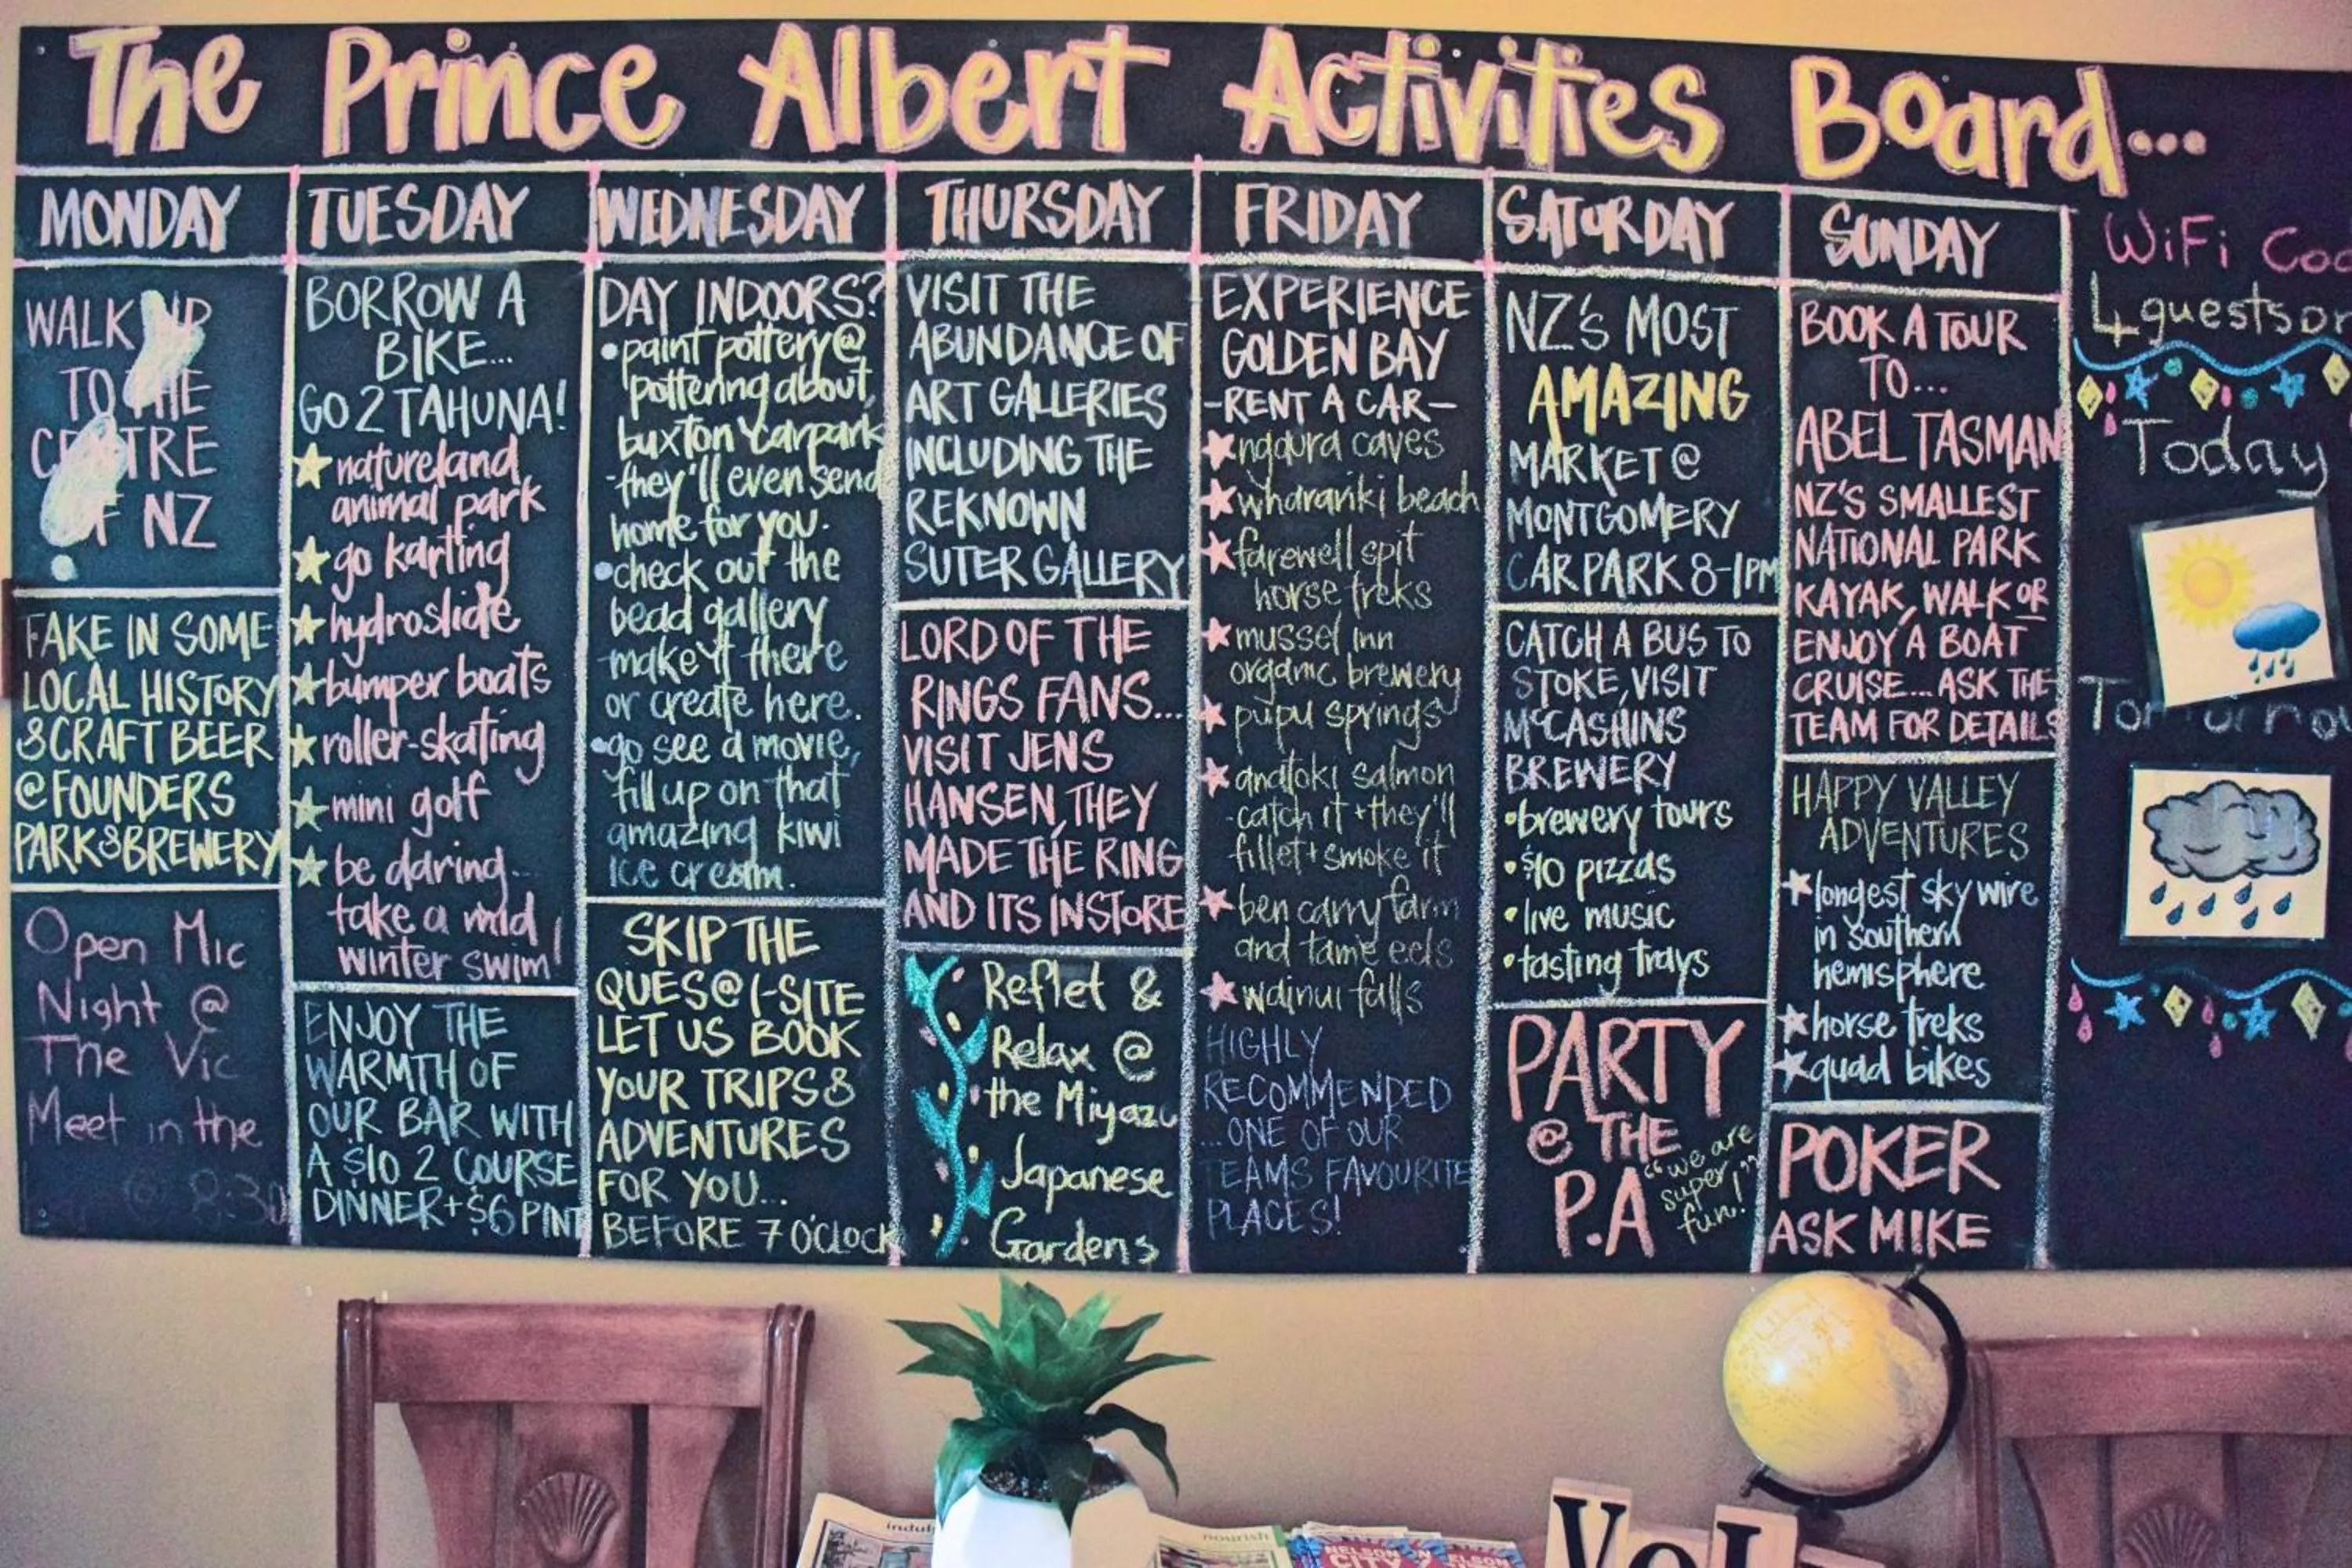 The Prince Albert Activities Board...
MONDAY
WALK UP
TO THE
CENTRE
OF NZ
FAKE IN SOME
LOCAL HISTORY
& CRAFT BEER
@ FOUNDERS
PARK & BREWERY
Open Mic
Night @
The Vic
Meet in the
@ 8:30
TUESDAY
BORROW A
BIKE...
GO 2 TAHUNA!
natureland
animal park
go karting
hydroslide
bumper boats
roller-skating
mini golf
be daring...
take a mid
winter swim!
ENJOY THE
WARMTH OF
OUR BAR WITH
A $10 2 COURSE
DINNER + $6 PINT
WEDNESDAY
DAY INDOORS?
• paint pottery @
pottering about,
buxton carpark
- they'll even send
home for you.
• check out the
bead gallery
make it there
or create here.
• go see a movie,
fill up on that
amazing kiwi
ice cream.
SKIP THE
QUES @ I-SITE
LET US BOOK
YOUR TRIPS &
ADVENTURES
FOR YOU...
BEFORE 7 O'CLOCK
THURSDAY
VISIT THE
ABUNDANCE OF
ART GALLERIES
INCLUDING THE
REKNOWN
SUTER GALLERY
LORD OF THE
RINGS FANS...
VISIT JENS
HANSEN, THEY
MADE THE RING
AND ITS INSTORE
Reflet &
Relax @
the Miyazu
Japanese
Gardens
FRIDAY
EXPERIENCE
GOLDEN BAY
-RENT A CAR-
ngaura caves
wharariki beach
farewell spit
horse treks
mussel inn
organic brewery
pupu springs
anatoki salmon
- catch it + they'll
fillet + smoke it
ben carry farm
and tame eels
wainui falls
HIGHLY
RECOMMENDED
...ONE OF OUR
TEAMS FAVOURITE
PLACES!
SATURDAY
NZ'S MOST
AMAZING
MARKET @
MONTGOMERY
CARPARK 8-1PM
CATCH A BUS TO
STOKE, VISIT
McCASHINS
BREWERY
• brewery tours
• $10 pizzas
• live music
• tasting trays
PARTY
@ THE
P.A
"we are
super
fun!"
SUNDAY
BOOK A TOUR
TO...
ABEL TASMAN
NZ'S SMALLEST
NATIONAL PARK
KAYAK, WALK OR
ENJOY A BOAT
CRUISE... ASK THE
TEAM FOR DETAILS
HAPPY VALLEY
ADVENTURES
longest sky wire
in southern
hemisphere
horse treks
quad bikes
POKER
ASK MIKE
WiFi Co
4 guests
Today
nourish
NELSON
CITY
NELSON
VOL